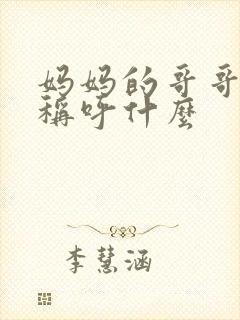 妈妈的哥哥
稱呼什麼
李慧涵